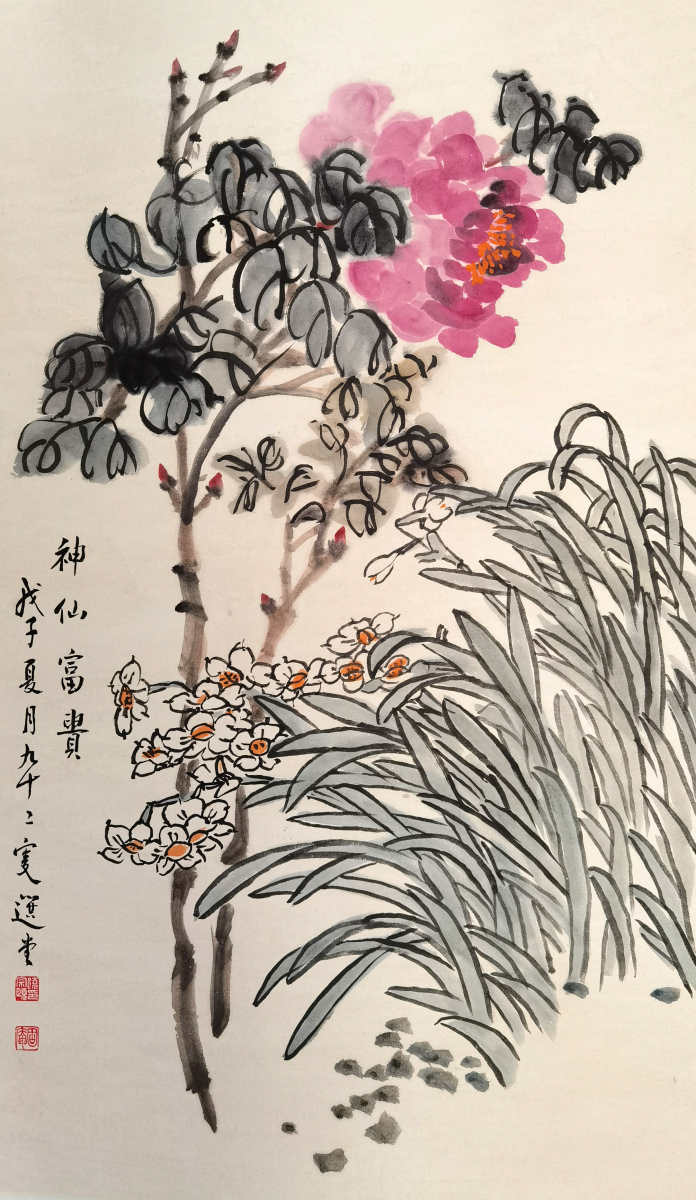 神仙富貴
戊子夏月九十二叟選堂